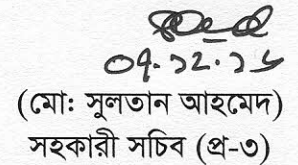 ০৭.১২.১৬
(মো: সুলতান আহমেদ)
সহকারী সচিব (প্র-৩)